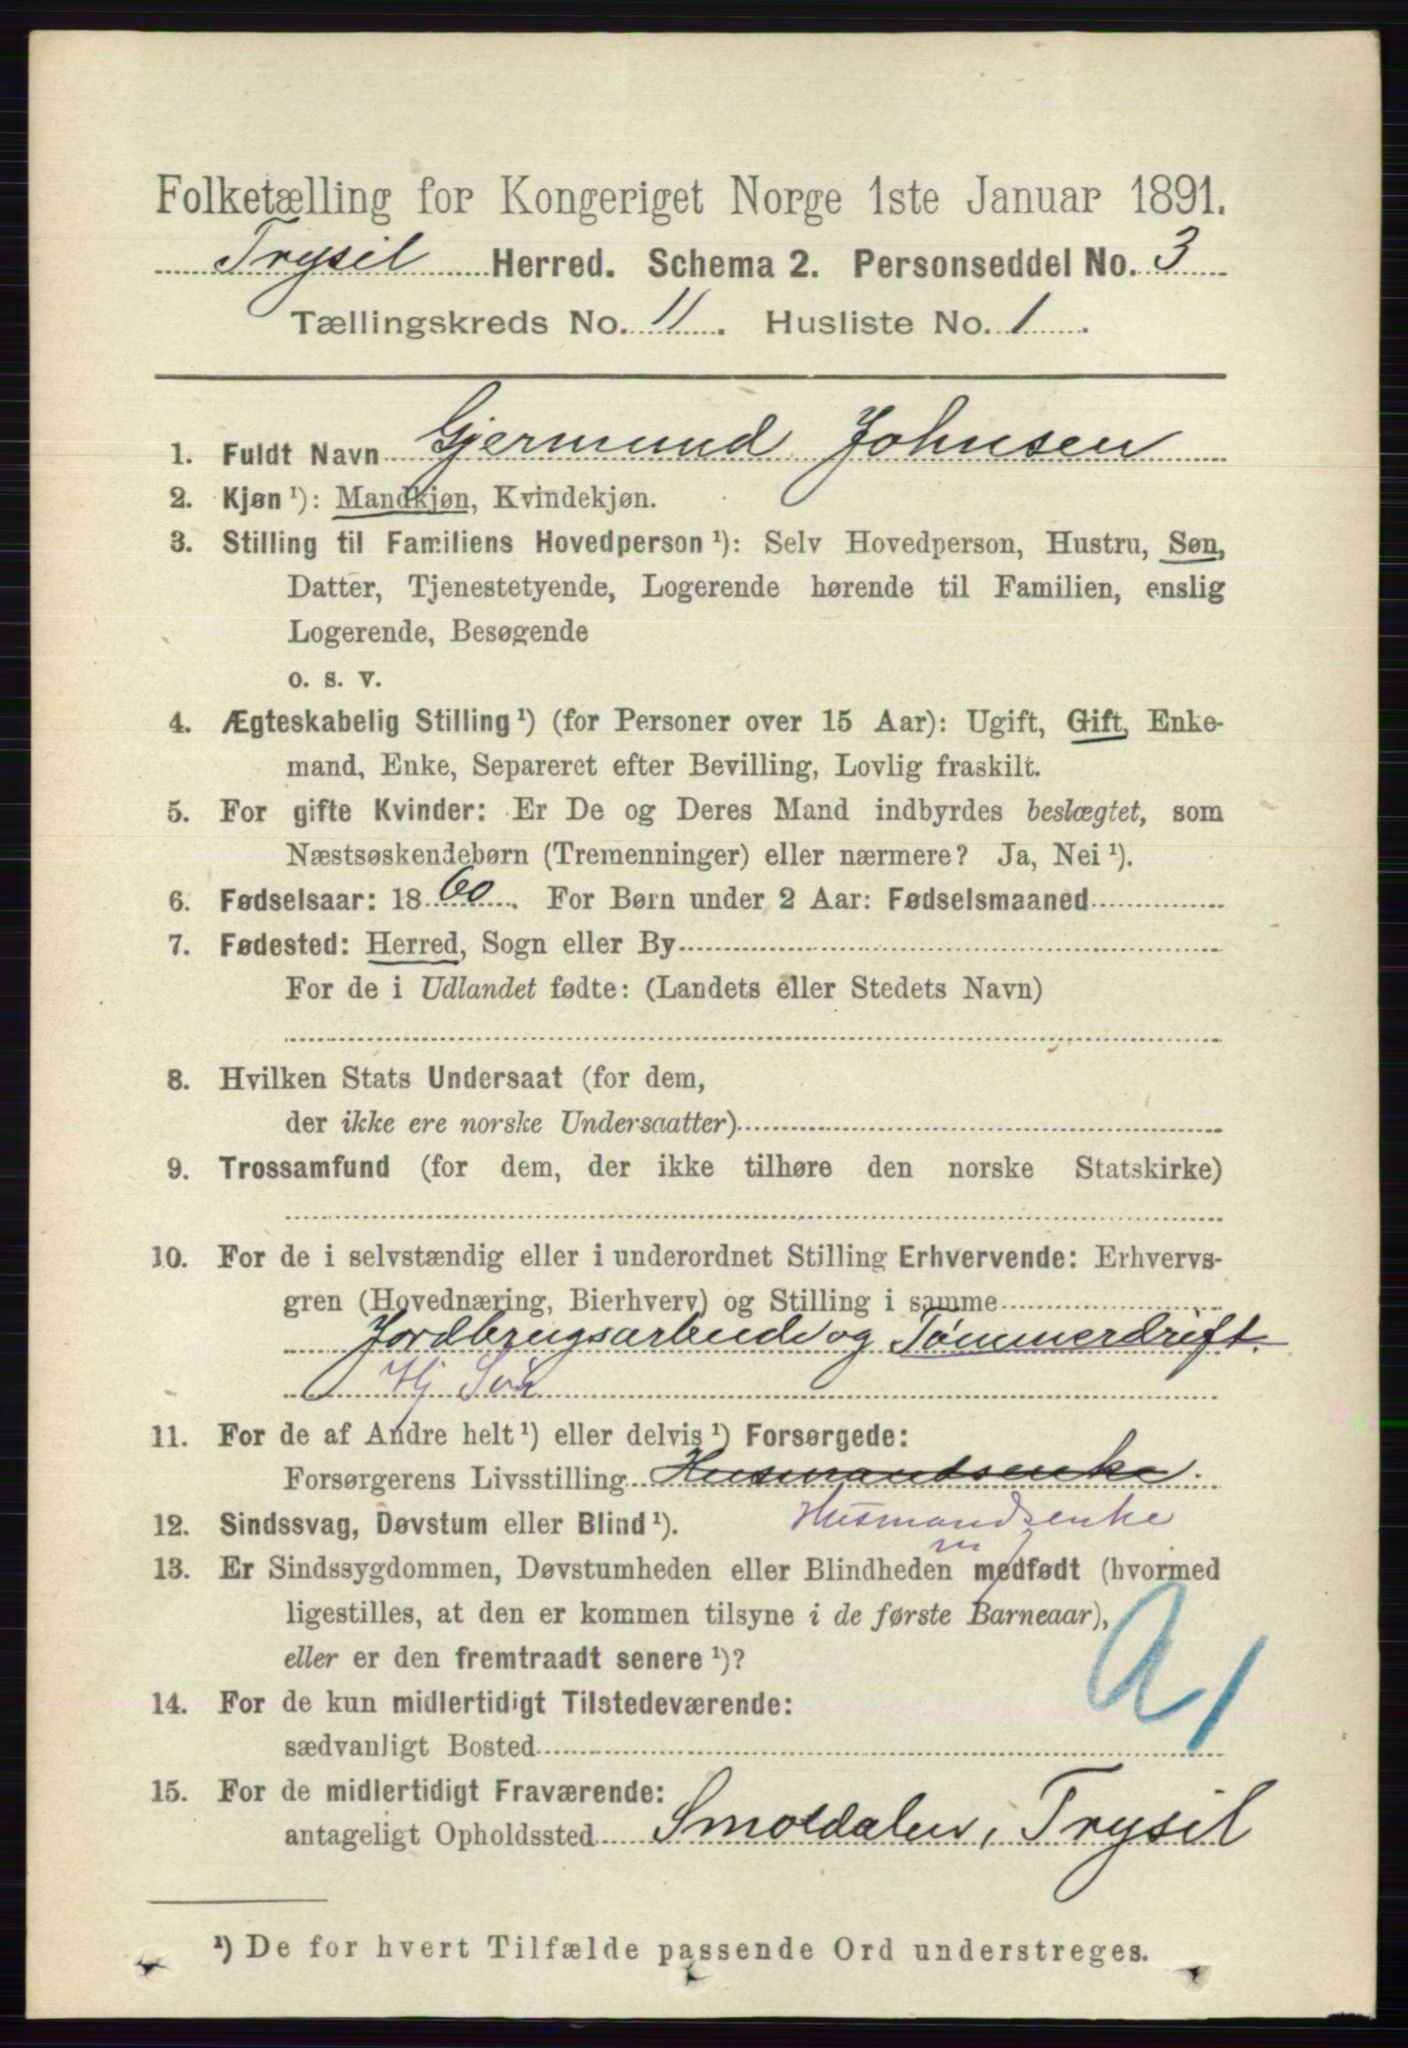 Folketælling for Kongeriget Norge 1ste Januar 1891.
Trysil Herred. Schema 2. Personseddel No. 3
Tællingskreds No. 11. Husliste No. 1.
1. Fuldt Navn Gjermund Johnsen
2. Kjøn ¹): Mandkjøn, Kvindekjøn.
3. Stilling til Familiens Hovedperson ¹): Selv Hovedperson, Hustru, Søn,
Datter, Tjenestetyende, Logerende hørende til Familien, enslig
Logerende, Besøgende
o. s. v.
4. Ægteskabelig Stilling ¹) (for Personer over 15 Aar): Ugift, Gift, Enke-
mand, Enke, Separeret efter Bevilling, Lovlig fraskilt.
5. For gifte Kvinder: Er De og Deres Mand indbyrdes beslægtet, som
Næstsøskendebørn (Tremenninger) eller nærmere? Ja, Nei ¹).
6. Fødselsaar: 1860. For Børn under 2 Aar: Fødselsmaaned
7. Fødested: Herred, Sogn eller By
For de i Udlandet fødte: (Landets eller Stedets Navn)
8. Hvilken Stats Undersaat (for dem,
der ikke ere norske Undersaatter)
9. Trossamfund (for dem, der ikke tilhøre den norske Statskirke)
10. For de i selvstændig eller i underordnet Stilling Erhvervende: Erhvervs-
gren (Hovednæring, Bierhverv) og Stilling i samme
Jordbrugsarbeide og Tømmerdrift.
Hj Søn
11. For de af Andre helt ¹) eller delvis ¹) Forsørgede:
Forsørgerens Livsstilling Husmandsenke.
12. Sindssvag, Døvstum eller Blind ¹). Husmandsenke
13. Er Sindssygdommen, Døvstumheden eller Blindheden medfødt (hvormed
ligestilles, at den er kommen tilsyne i de første Barneaar),
eller er den fremtraadt senere ¹)?
14. For de kun midlertidigt Tilstedeværende:
sædvanligt Bosted
15. For de midlertidigt Fraværende:
antageligt Opholdssted Smoldalen, Trysil
¹) De for hvert Tilfælde passende Ord understreges.